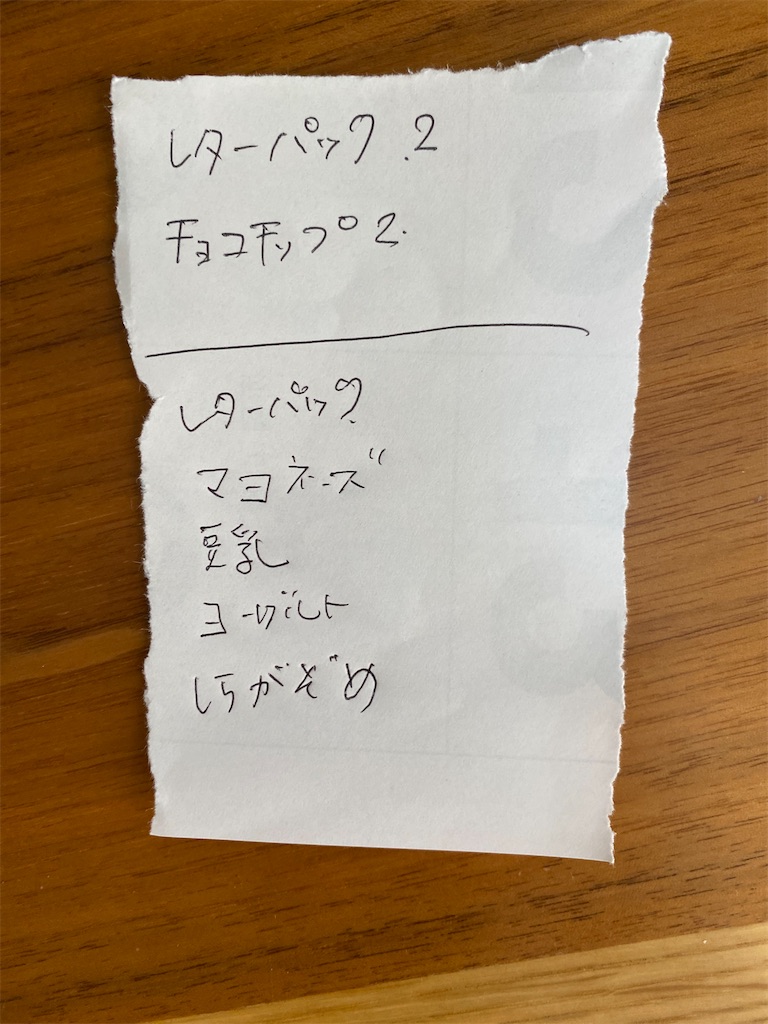 レターパック 2
チョコチップ 2
レターパック
マヨネーズ
豆乳
ヨーグルト
しらがぞめ